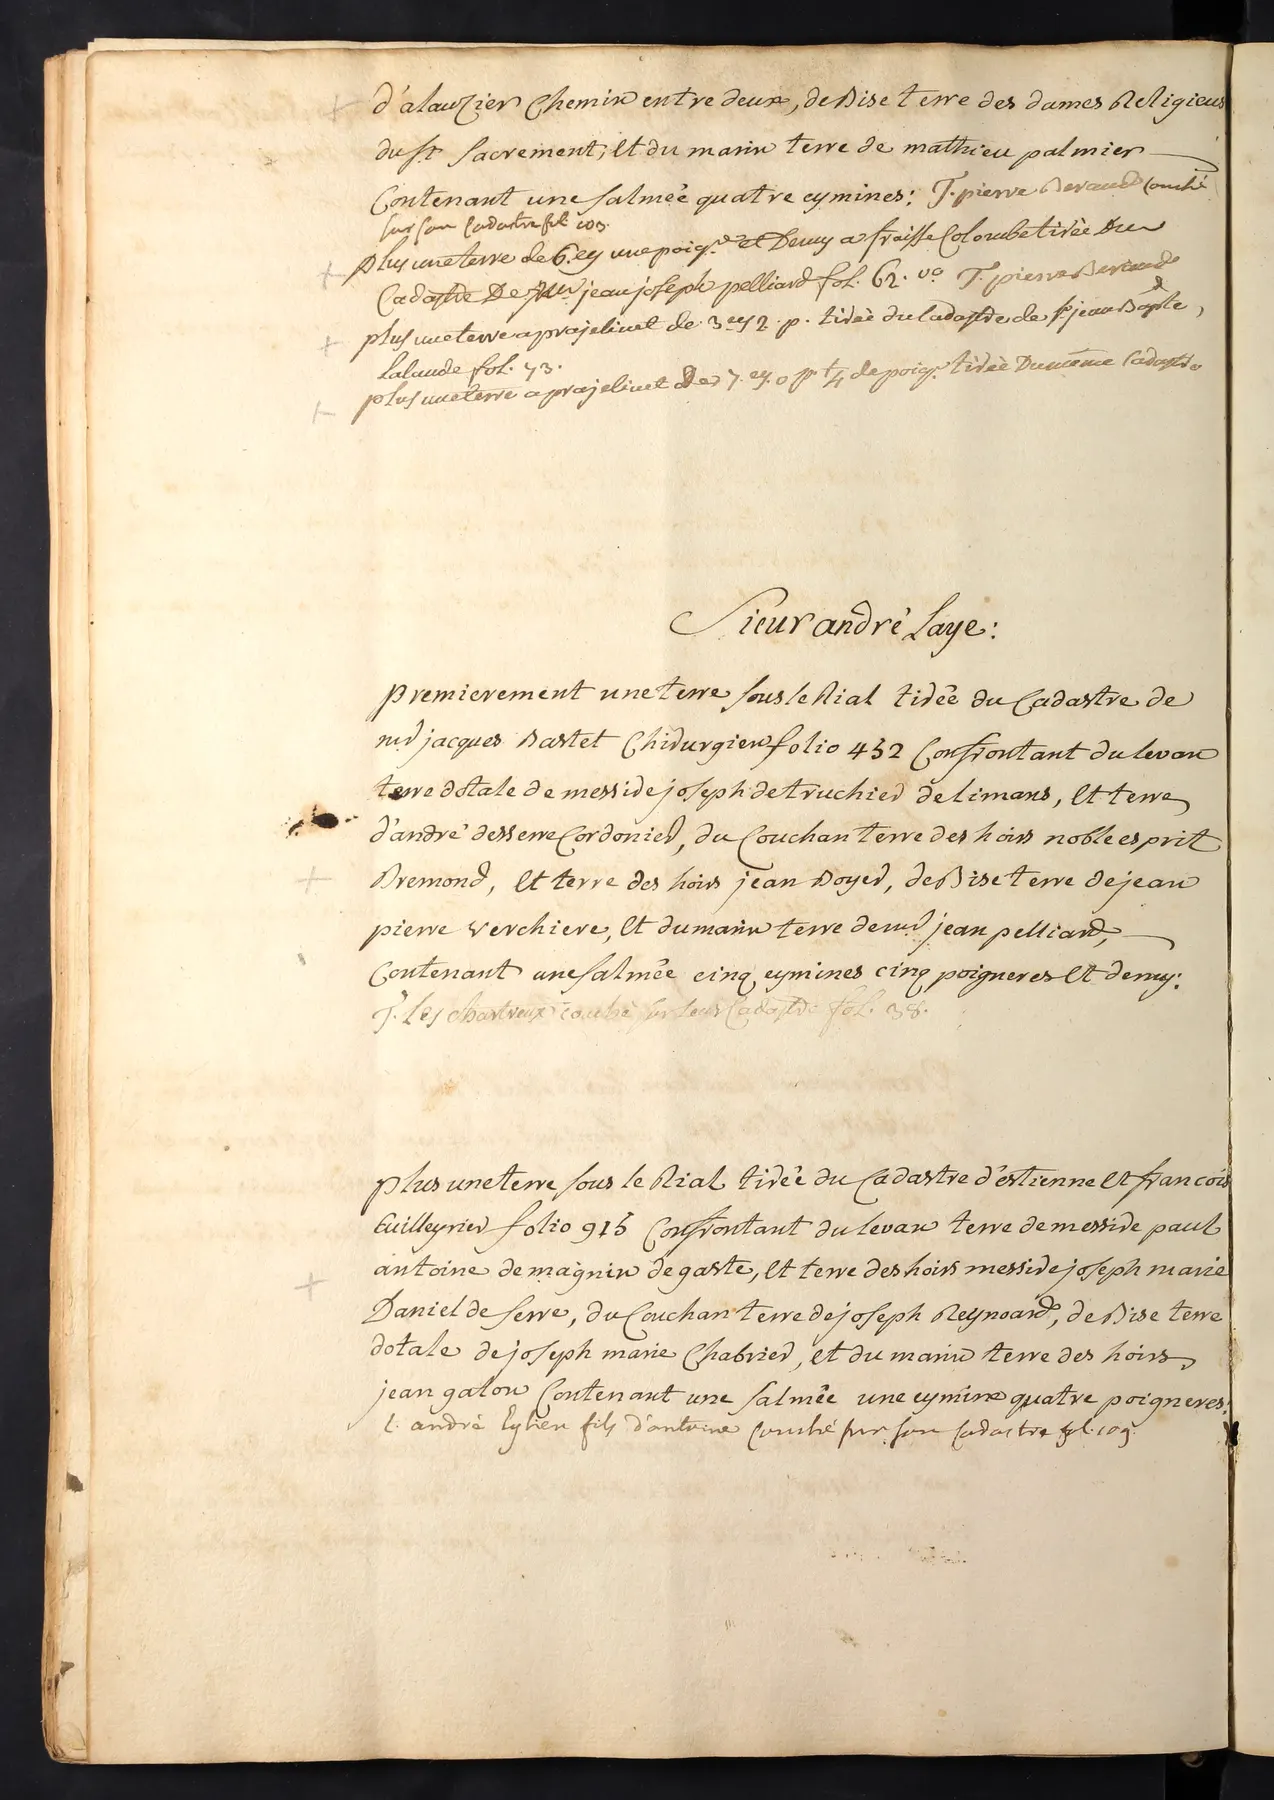 d'alauzier Chemin entre deux, de Bise terre des dames Religieus
du st sacrement, et du marin terre de mathieu palmier
Contenant une salmée quatre eymines: T. pierre Beraud couché
sur son Cadastre fol. 103.
plus une terre de 6. ey une poig.e et Demy a fraisse Colombe tirée Du
Cadastre De jean joseph pelliard fol. 62. vo T. pierre Beraud
plus une terre a prajelinet de 3 ey 2. p. tirée du Cadastre de sr jean Bapte
Lalaude fol. 73.
plus une terre a prajelinet de 7. ey. 0 p. 1/4 de poig.e tirée Du même Cadastre
Sieur andré Laye:
premierement une terre sous le Rial tirée du Cadastre de
mr jacques Bastet Chirurgien folio 432 Confrontant du levan
terre dotale de messire joseph de truchier de limans, et terre
d'andré desserre Cordonier, du Couchan terre des hoirs noble esprit
Bremond, et terre des hoirs jean Boyer, de Bise terre de jean
pierre verchiere, et du marin terre de mr jean pelliard,
Contenant une salmée cinq eymines cinq poigneres et demy:
T. Les chartreux couché sur leur Cadastre fol. 38.
plus une terre sous le Rial tirée du Cadastre d'estienne et francois
Cuilleyrier folio 915 Confrontant du levan terre de messire paul
antoine de magnin de gaste, et terre des hoirs messire joseph marie
Daniel de serre, du Couchan terre de joseph Reynoard, de Bise terre
dotale de joseph marie Chabrier, et du marin terre des hoirs
jean galon Contenant une salmée une eymine quatre poigneres:
t. andré fils d'antoine couché sur son Cadastre fol. 109.